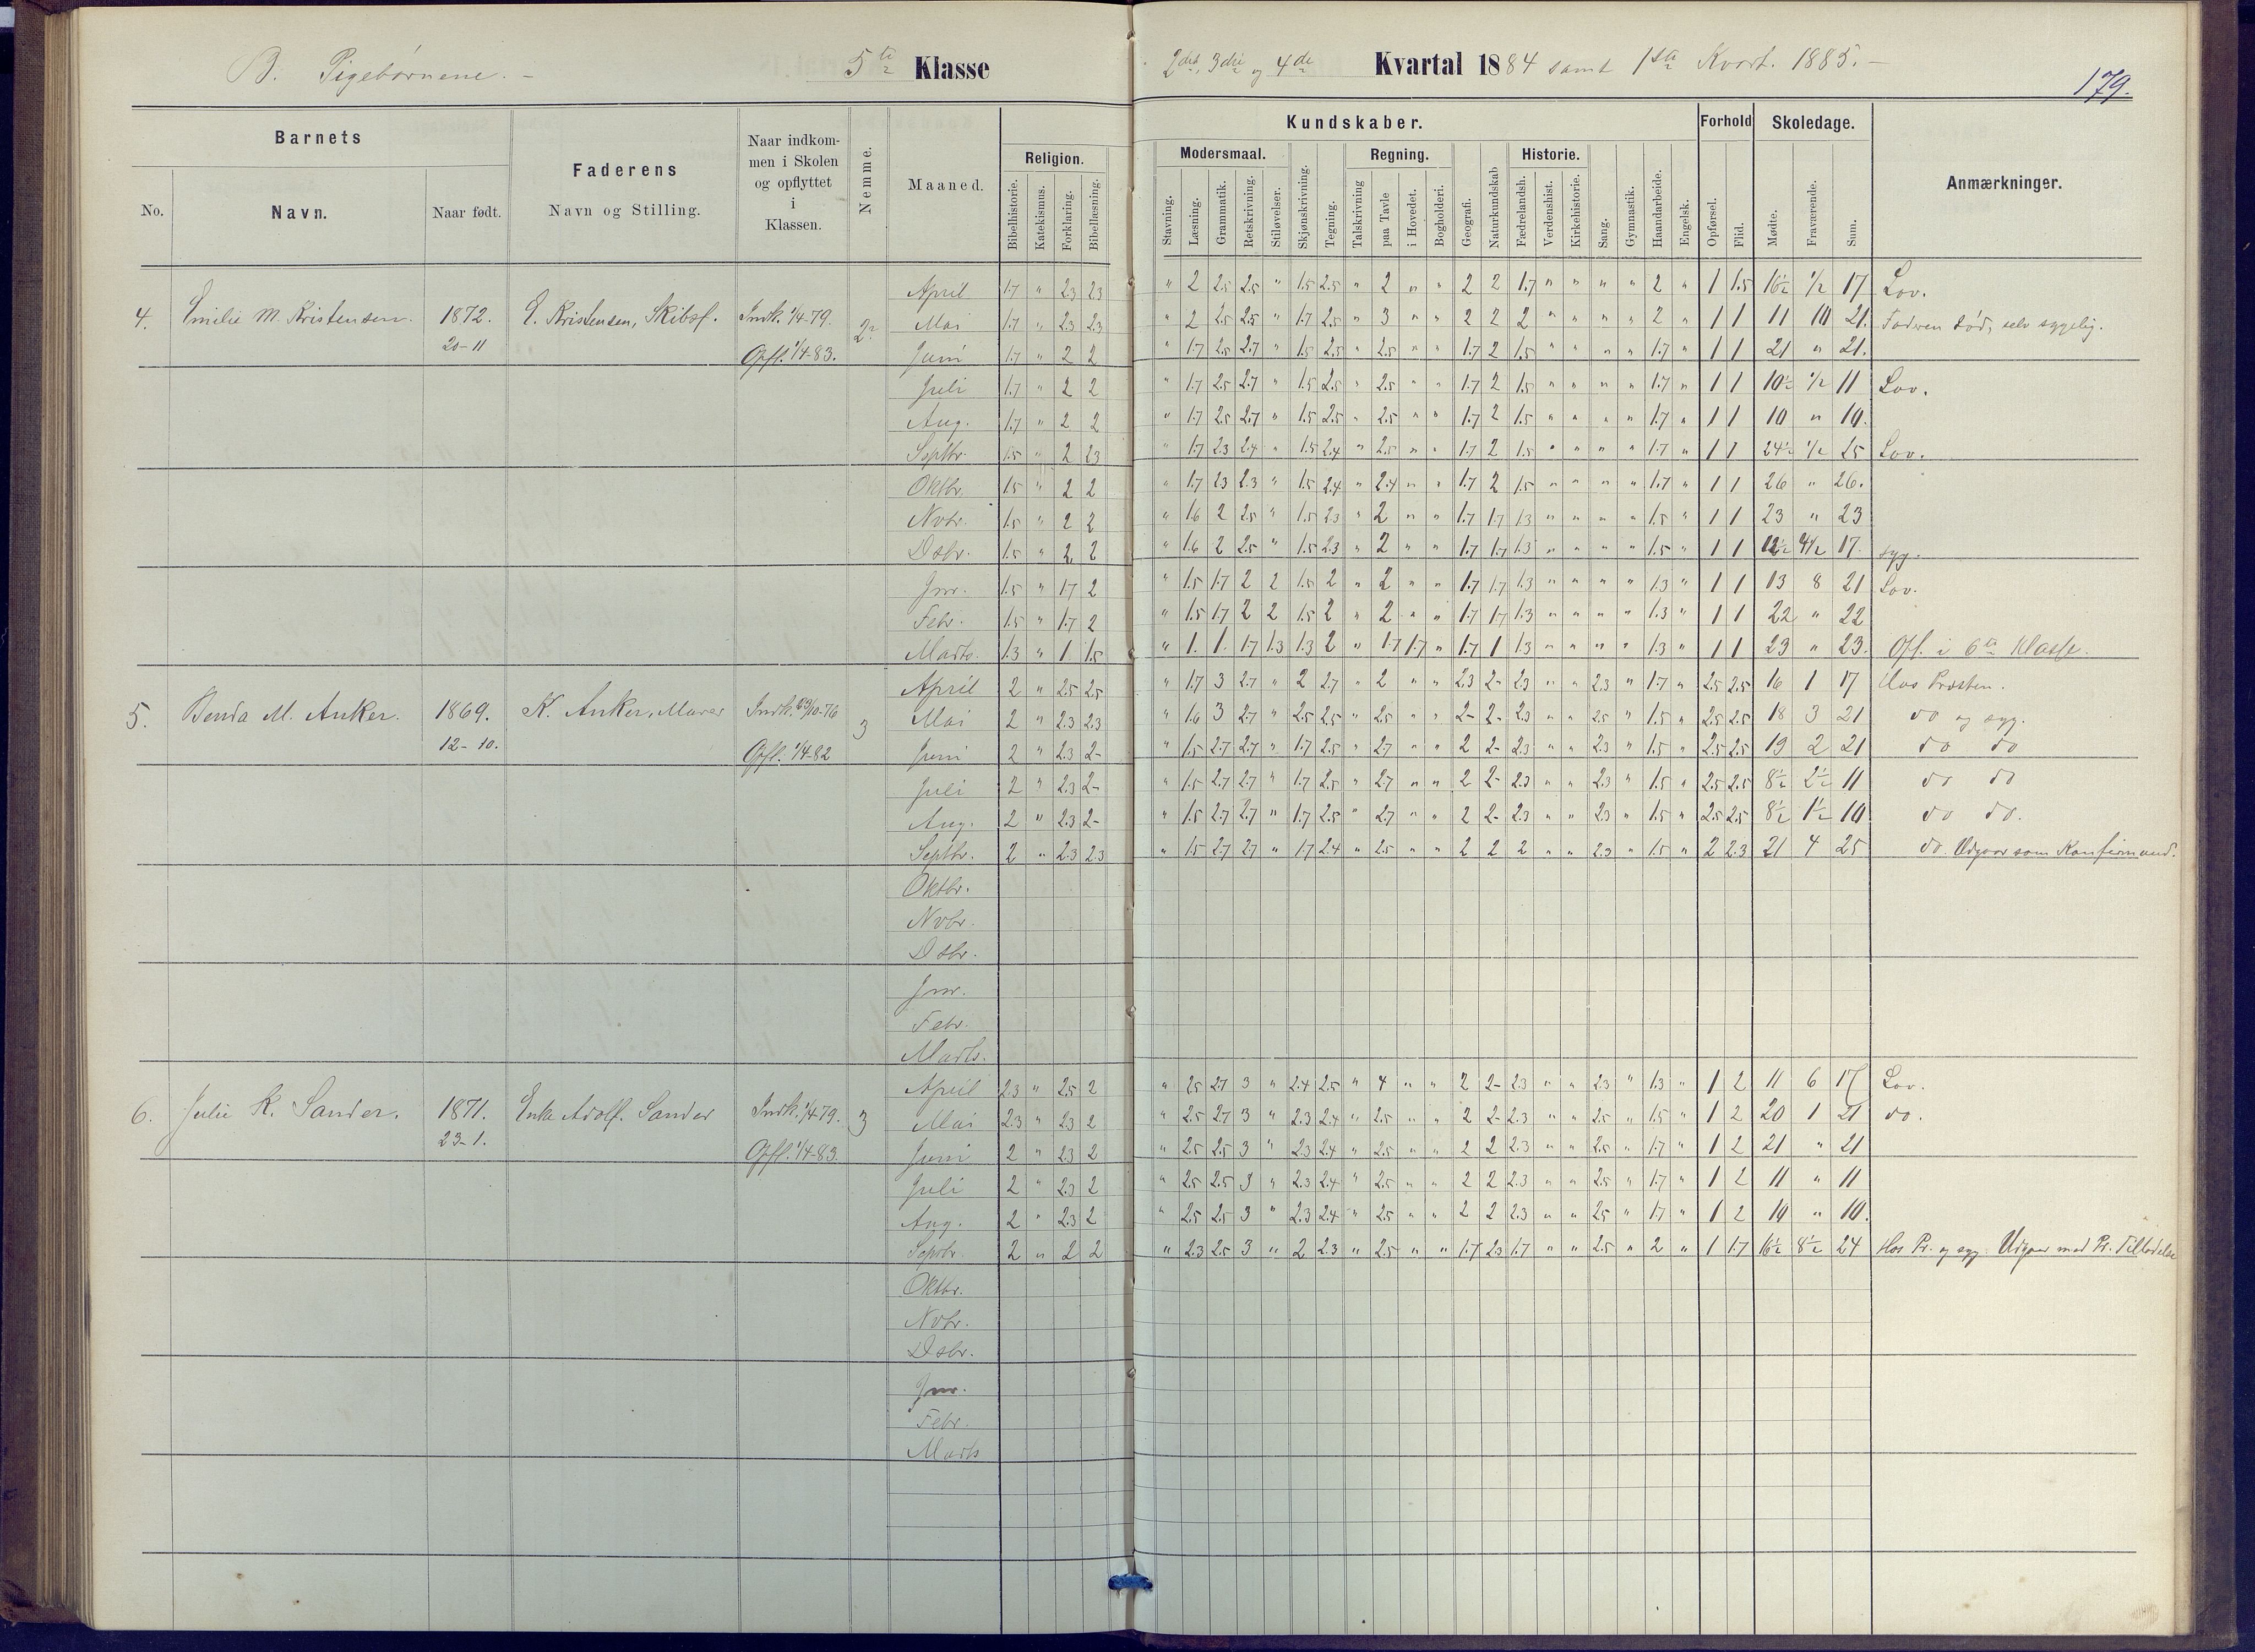 B. Pigebørnene. –
5te Klasse
2det, 3die og 4de Kvartal 1884 samt 1ste Kvart. 1885. –
179.
Barnets
Faderens
Naar indkommen i Skolen og opflyttet i Klassen.
Nemme.
Maaned.
Kundskaber.
Forhold
Skoledage.
Anmærkninger.
No.
Navn.
Naar født.
Navn og Stilling.
Religion.
Modersmaal.
Regning.
Historie.
Bibelhistorie. Katekismus. Forklaring. Bibellæsning. Stavning. Læsning. Grammatik. Retskrivning. Stiløvelser. Skjønskrivning. Tegning. Talskrivning paa Tavle i Hovedet. Bogholderi. Geografi. Naturkundskab Fædrelandsh. Verdenshist. Kirkehistorie. Sang. Gymnastik. Haandarbeide. Engelsk. Opførsel. Flid. Mødte. Fraværende. Sum.
4. Emilie M. Kristensen. 1872. 20-11 E. Kristensen, Skibsf. Indk. 1/4-79. Opfl. 1/4-83. 2
April 1.7 " 2.3 2.3 " 2 2.5 2.5 " 1.5 2.5 " 2 " " 2 2 1.7 " " " " 2 " 1 1.5 16½ ½ 17 Lov.
Mai 1.7 " 2.3 2.3 " 2 2.5 2.5 " 1.7 2.5 " 3 " " 2 2 2 " " " " 2 " 1 1 11 10 21. Faderen død, selv sygelig.
Juni 1.7 " 2 2 " 1.7 2.5 2.7 " 1.5 2.5 " 2.5 " " 1.7 2 1.5 " " " " 1.7 " 1 1 21 " 21.
Juli 1.7 " 2 2 " 1.7 2.5 2.7 " 1.5 2.5 " 2.5 " " 1.7 2 1.5 " " " " 1.7 " 1 1 10½ ½ 11 Lov.
Aug. 1.7 " 2 2 " 1.7 2.5 2.7 " 1.5 2.5 " 2.5 " " 1.7 2 1.5 " " " " 1.7 " 1 1 10 " 10.
Septbr. 1.5 " 2 2.3 " 1.7 2.3 2.4 " 1.5 2.4 " 2.5 " " 1.7 2 1.5 " " " " 1.7 " 1 1 24½ ½ 25 Lov.
Oktbr. 1.5 " 2 2 " 1.7 2.3 2.3 " 1.5 2.4 " 2.4 " " 1.7 2 1.5 " " " " 1.7 " 1 1 26 " 26.
Novbr. 1.5 " 2 2 " 1.6 2 2.5 " 1.5 2.3 " 2 " " 1.7 1.7 1.3 " " " " 1.5 " 1 1 23 " 23
Dsbr. 1.5 " 2 2 " 1.6 2 2.5 " 1.5 2.3 " 2 " " 1.7 1.7 1.3 " " " " 1.5 " 1 1 12½ 4½ 17. syg.
Jnr. 1.5 " 1.7 2 " 1.5 1.7 2 2 1.5 2 " 2 " " 1.7 1.7 1.3 " " " " 1.3 " 1 1 13 8 21 Lov.
Febr. 1.5 " 1.7 2 " 1.5 1.7 2 2 1.5 2 " 2 " " 1.7 1.7 1.3 " " " " 1.3 " 1 1 22 " 22
Marts. 1.3 " 1. 1.5 " 1. 1. 1.7 1.3 1.3 2 " 1.7 1.7 " 1.7 1 1.3 " " " " 1.3 " 1 1 23 " 23. Opf. i 6te Klasse.
5. Benda M. Anker. 1869. 12-10. K. Anker, Murer Indk. /10-76 Opfl. 1/4-82 3
April 2 " 2.5 2.5 " 1.7 3 2.7 " 2 2.7 " 2 " " 2.3 2- 2.3 " " 2.3 " 1.7 " 2.5 2.5 16 1 17 Hos Præsten.
Mai 2 " 2.3 2.3 " 1.6 3 2.7 " 2.5 2.5 " 2.5 " " 2- 2- 2.3 " " 2.5 " 1.5 " 2.5 2.5 18 3 21 do og syg.
Juni 2 " 2.3 2- " 1.5 2.7 2.7 " 1.7 2.5 " 2.7 " " 2 2- 2.3 " " 2.3 " 1.5 " 2.5 2.5 19 2 21 do do
Juli 2 " 2.3 2- " 1.5 2.7 2.7 " 1.7 2.5 " 2.7 " " 2 2- 2.3 " " 2.3 " 1.5 " 2.5 2.5 8½ 2½ 11 do do
Aug. 2 " 2.3 2- " 1.5 2.7 2.7 " 1.7 2.5 " 2.7 " " 2 2- 2.3 " " 2.3 " 1.5 " 2.5 2.5 8½ 1½ 10 do do.
Septbr. 2 " 2.3 2.3 " 1.5 2.7 2.7 " 1.7 2.4 " 2.5 " " 2 2 2 " " 2.3 " 1.5 " 2 2.3 21 4 25 do. Udgaar som Konfirmand.
Oktbr.
Nvbr.
Dsbr.
Jnr.
Febr.
Marts.
6. Julie K. Sander. 1871. 23-1. Enke Adolf. Sander Indk. 1/4-79. Opfl. 1/4-83. 3
April 2.3 " 2.5 2 " 2.5 2.7 3 " 2.4 2.5 " 4 " " 2 2- 2.3 " " 2.3 " 1.3 " 1 2 11 6 17 Lov.
Mai 2.3 " 2.3 2 " 2.5 2.7 3 " 2.3 2.4 " 2.5 " " 2 2- 2.3 " " 2.5 " 1.5 " 1 2 20 1 21 do.
Juni 2 " 2.3 2 " 2.5 2.5 3 " 2.3 2.4 " 2.5 " " 2 2 2.3 " " 2.5 " 1.7 " 1 2 21 " 21
Juli 2 " 2.3 2 " 2.5 2.5 3 " 2.3 2.4 " 2.5 " " 2 2 2.3 " " 2.5 " 1.7 " 1 2 11 " 11
Aug. 2 " 2.3 2 " 2.5 2.5 3 " 2.3 2.4 " 2.5 " " 2 2 2.3 " " 2.5 " 1.7 " 1 2 10 " 10.
Septbr. 2 " 2 2 " 2.3 2.5 3 " 2 2.3 " 2.5 " " 1.7 2.3 1.7 " " 2.5 " 2 " 1 1.7 16½ 8½ 24 Hos Pr. og syg. Udgaar med Pr. Tilladelse
Oktbr.
Nvbr.
Dsbr.
Jnr.
Febr.
Marts